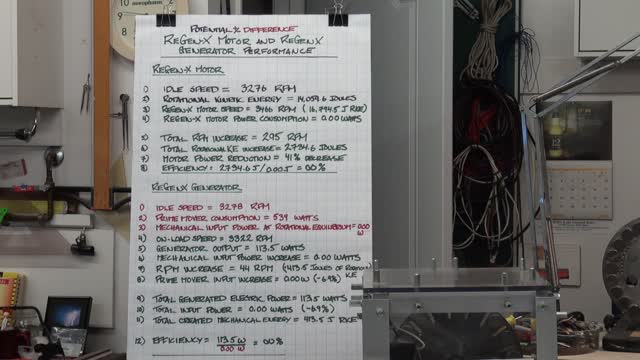 POTENTIAL % DIFFERENCE
ReGen-X Motor and ReGenX
Generator Performance
ReGen-X Motor
1) Idle Speed = 3276 RPM
2) Rotational Kinetic Energy = 14,059.6 Joules
3) ReGen-X Motor Speed = 3466 RPM (16,794.5 J RKE)
4) ReGen-X Motor Power Consumption = 0.00 Watts
5) Total RPM Increase = 295 RPM
6) Total Rotational KE Increase = 2734.6 Joules
7) Motor Power Reduction = 41% Decrease
8) Efficiency = 2734.6 J/0.00 J = ∞%
ReGenX Generator
1) Idle Speed = 3278 RPM
2) Prime Mover Consumption = 539 Watts
3) Mechanical Input Power at Rotational Equilibrium = 0.00 W
4) On-Load Speed = 3322 RPM
5) Generator Output = 113.5 Watts
6) Mechanical Input Power Increase = 0.00 Watts
7) RPM Increase = 44 RPM (413.5 Joules of Rotational KE
8) Prime Mover Input Increase = 0.00 W (-6.9%)
9) Total Generated Electric Power = 113.5 Watts
10) Total Input Power = 0.00 Watts (-6.9%)
11) Total Created Mechanical Energy = 413.5 J RKE
12) Efficiency = 113.5 W / 0.00 W = ∞%